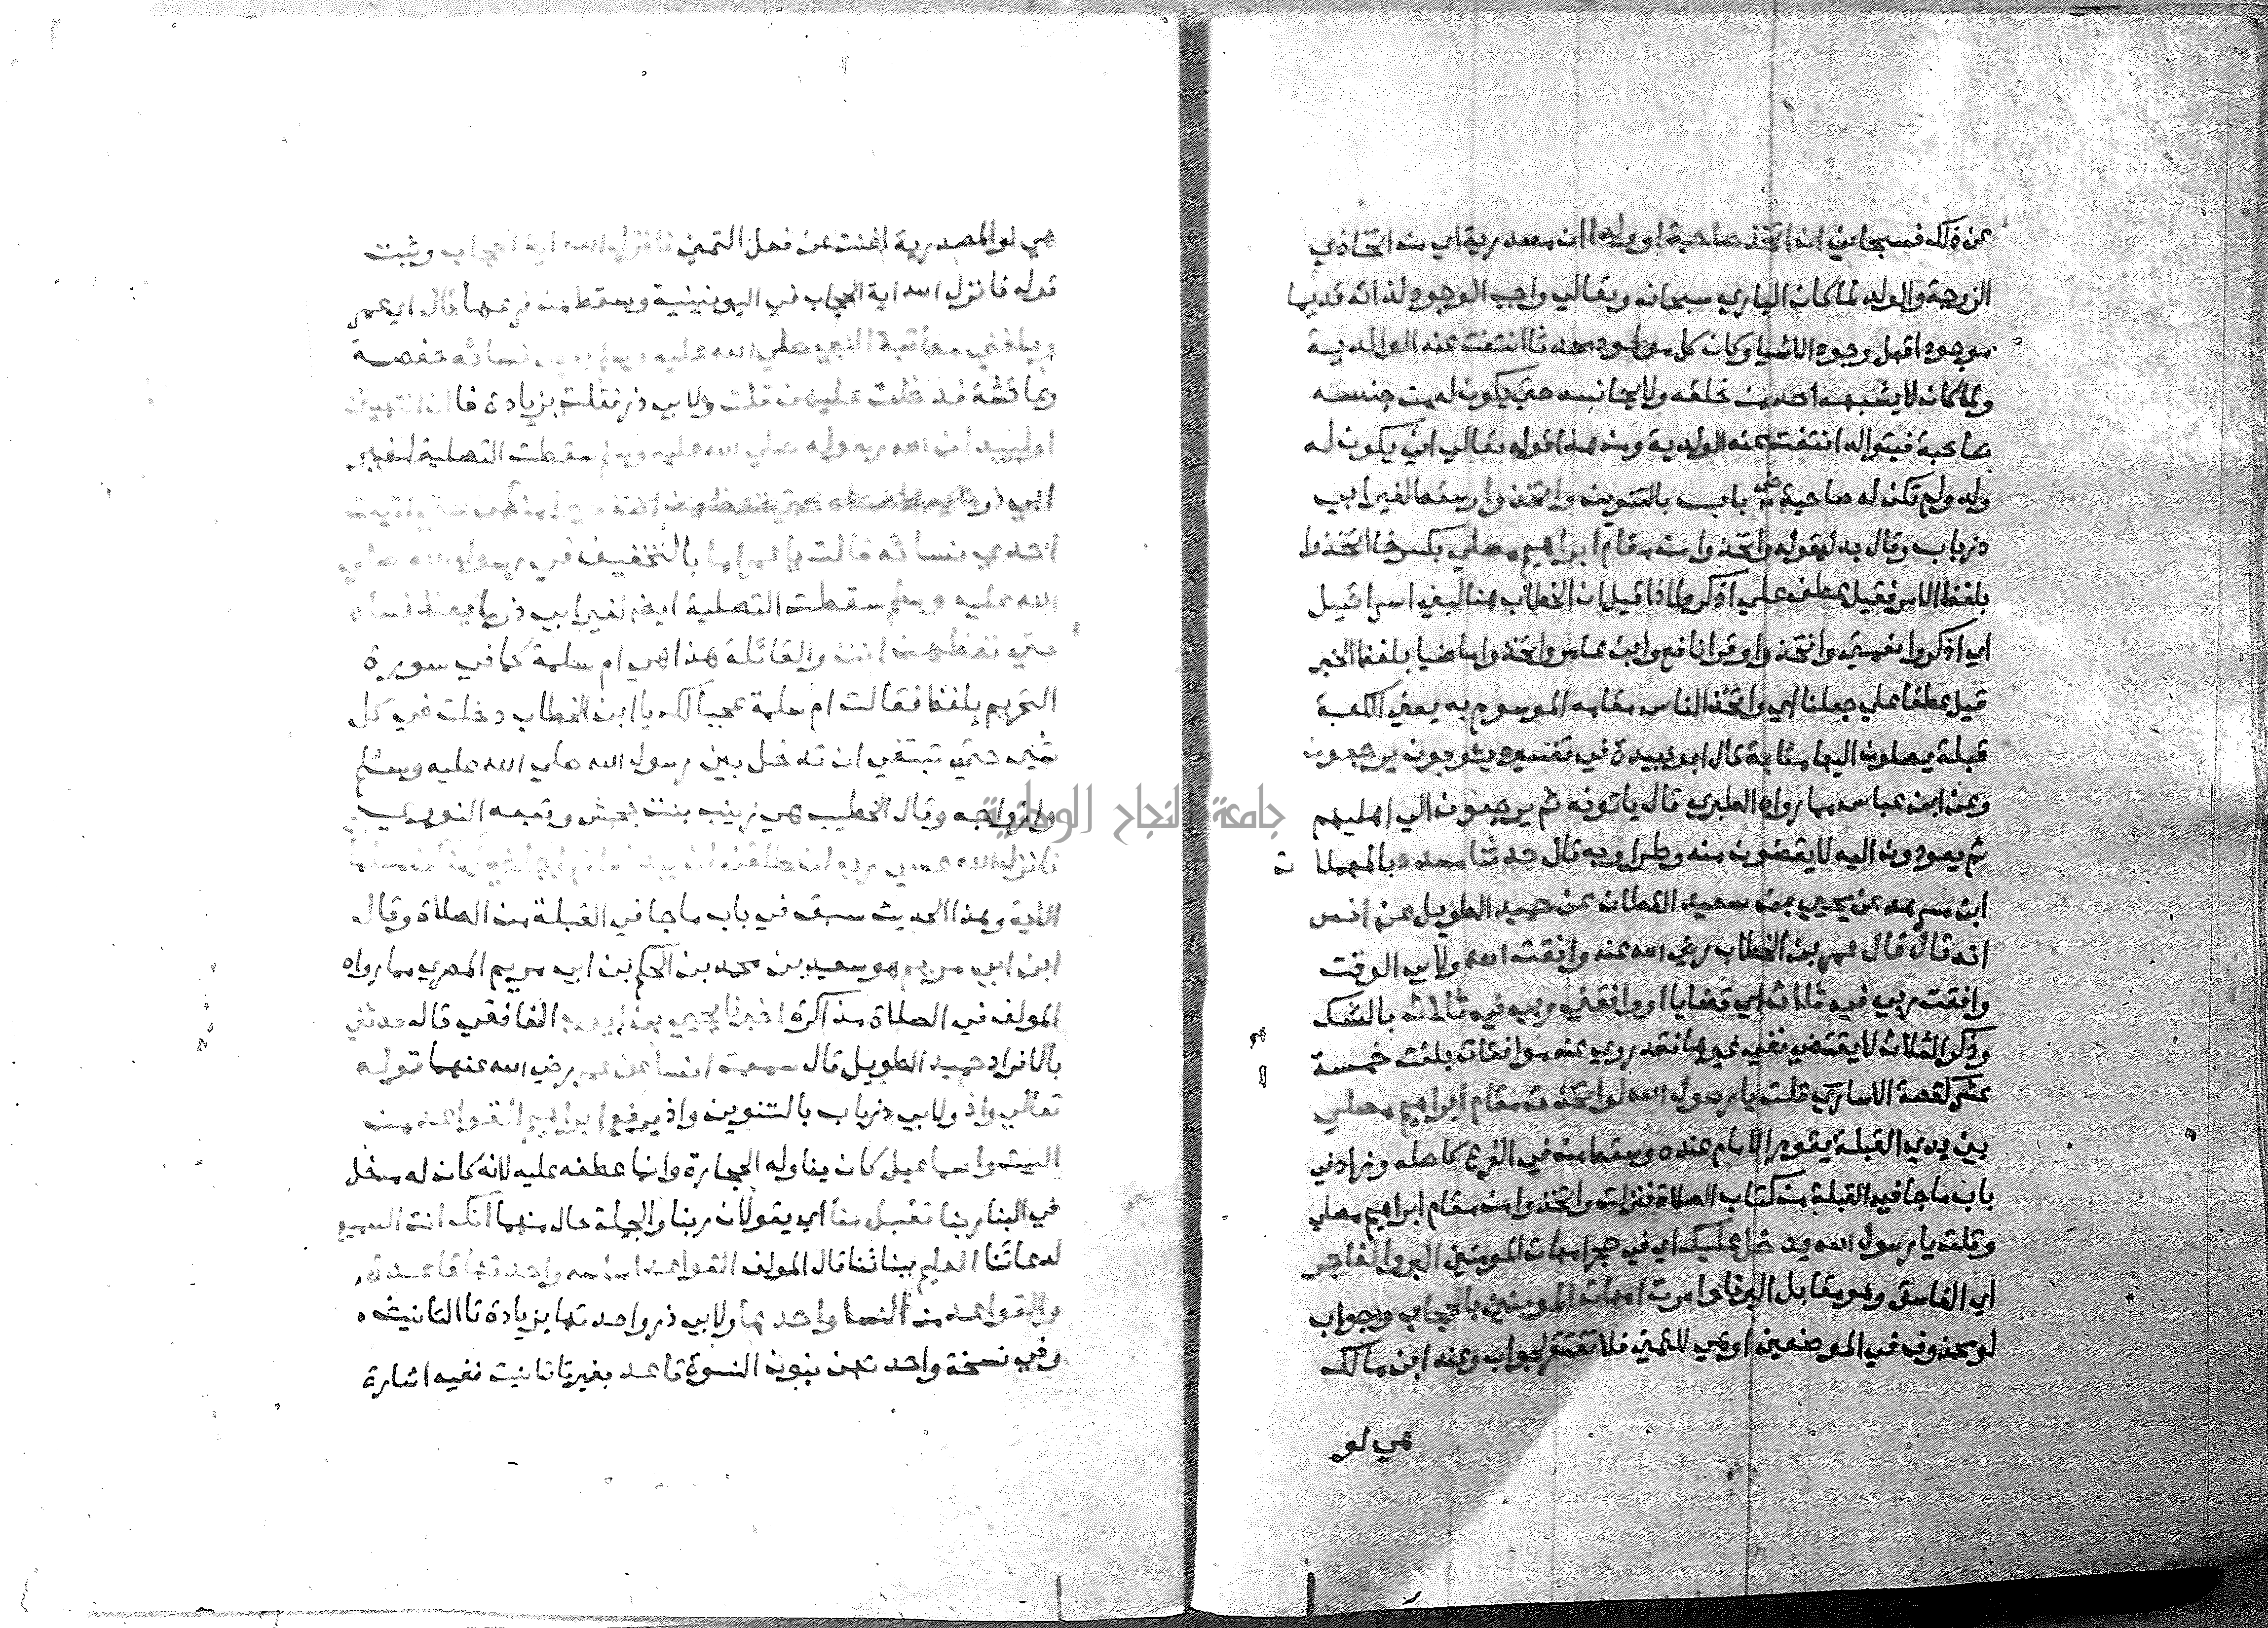 عن ذلك فسبحاني ان اتخذ صاحبة او ولدا ان مصدرية اي من اتخاذي
الزوجة والولد لما كان الباري سبحانه وتعالي واجب الوجود لذاته قديما
موجودا قبل وجود الاشيا وكان كل مولود محدثا انتفت عنه الوالدية
ولما كان لا يشبهه احد من خلقه ولا يجانسه حتي يكون له من جنسه
صاحبة فيتوالد انتفت عنه الولدية ومن هذا قوله تعالي اني يكون له
ولد ولم تكن له صاحبة باب بالتنوين واتخذوا وسقط لغير ابي
ذر باب وقال بدله قوله واتخذوا من مقام ابراهيم مصلي بكسر خا اتخذوا
بلفظ الامر فقيل عطف علي اذكروا اذا قيل ان الخطاب هنا لبني اسرائيل
اي اذكروا نعمتي واتخذوا وقرا نافع وابن عامر واتخذوا ماضيا بلفظ الخبر
قيل عطفا علي جعلنا اي واتخذ الناس مقامه الموسوم به يعني الكعبة
قبلة يصلون اليها مثابة قال ابو عبيدة في تفسيره يثوبون يرجعون
وعن ابن عباس مما رواه الطبري قال ياتونه ثم يرجعون الي اهليهم
ثم يعودون اليه لا يقضون منه وطرا وبه قال حدثنا مسدد بالمهملات
ابن مسرهد عن يحيي بن سعيد القطان عن حميد الطويل عن انس
انه قال قال عمر بن الخطاب رضي الله عنه وافقت الله ولابي الوقت
وافقت ربي في ثلاث اي قضايا او وافقني ربي في ثلاث بالشك
وذكر الثلاث لا يقتضي نفي غيرها فقد روي عنه موافقات بلغت خمسة
عشر كقصة الاساري قلت يا رسول الله لو اتخذت مقام ابراهيم مصلي
بين يدي القبلة يقوم الامام عنده وسقط من في الفرع كاصله وزاد في
باب ما جا في القبلة من كتاب الصلاة فنزلت واتخذوا من مقام ابراهيم مصلي
وقلت يا رسول الله يدخل عليك اي في حجر امهات المومنين البر والفاجر
اي الفاسق وهو مقابل البر فلو امرت امهات المومنين بالحجاب وجواب
لو محذوف في الموضعين او هي للتمني فلا تفتقر لجواب وعند ابن مالك
هي لو
هي لو المصدرية اغنت عن فعل التمني فانزل الله اية الحجاب وثبت
قوله فانزل الله اية الحجاب في اليونينية وسقط من فرعها قال اي عمر
وبلغني معاتبة النبي صلي الله عليه وسلم بعض نسائه حفصة
وعائشة فدخلت عليهن قلت ولابي ذر فقلت بزيادة فا ان انتهيتن
او ليبدلن الله رسوله صلي الله عليه وسلم سقطت التصلية لغير
ابي ذر
احدي نسائه قالت يا عمر اما بالتخفيف في رسول الله صلي
الله عليه وسلم سقطت التصلية ايضا لغير ابي ذر ما يعظ نساه
حتي تعظهن انت والقائلة هذا هي ام سلمة كما في سورة
التحريم بلفظ فقالت ام سلمة عجبا لك يا ابن الخطاب دخلت في كل
شي حتي تبتغي ان تدخل بين رسول الله صلي الله عليه وسلم
وازواجه وقال الخطيب هي زينب بنت جحش وتبعه النووي
فانزل الله عسي ربه ان طلقكن ان يبدله ازواجا خيرا منكن مسلمات
الاية وهذا الحديث سبق في باب ما جا في القبلة من الصلاة وقال
ابن ابي مريم هو سعيد بن محمد بن الحكم بن ابي مريم المصري مما رواه
المولف في الصلاة مذاكرة اخبرنا يحيي بن ايوب الغافقي قال حدثني
بالافراد حميد الطويل قال سمعت انسا عن عمر رضي الله عنهما قوله
تعالي واذ ولابي ذر باب بالتنوين واذ يرفع ابراهيم القواعد من
البيت واسماعيل كان يناوله الحجارة وانما عطفه عليه لانه كان له مدخل
في البنا ربنا تقبل منا اي يقولان ربنا والجملة حال منهما انك انت السميع
لدعائنا العليم بنياتنا قال المولف القواعد اساسه واحدتها قاعدة
والقواعد من النسا واحدها ولابي ذر واحدتها بزيادة تا التانيث
وفي نسخة واحدتهن بنون النسوة قاعد بغير تا تانيث ففيه اشارة
جامعة النجاح الوطنية